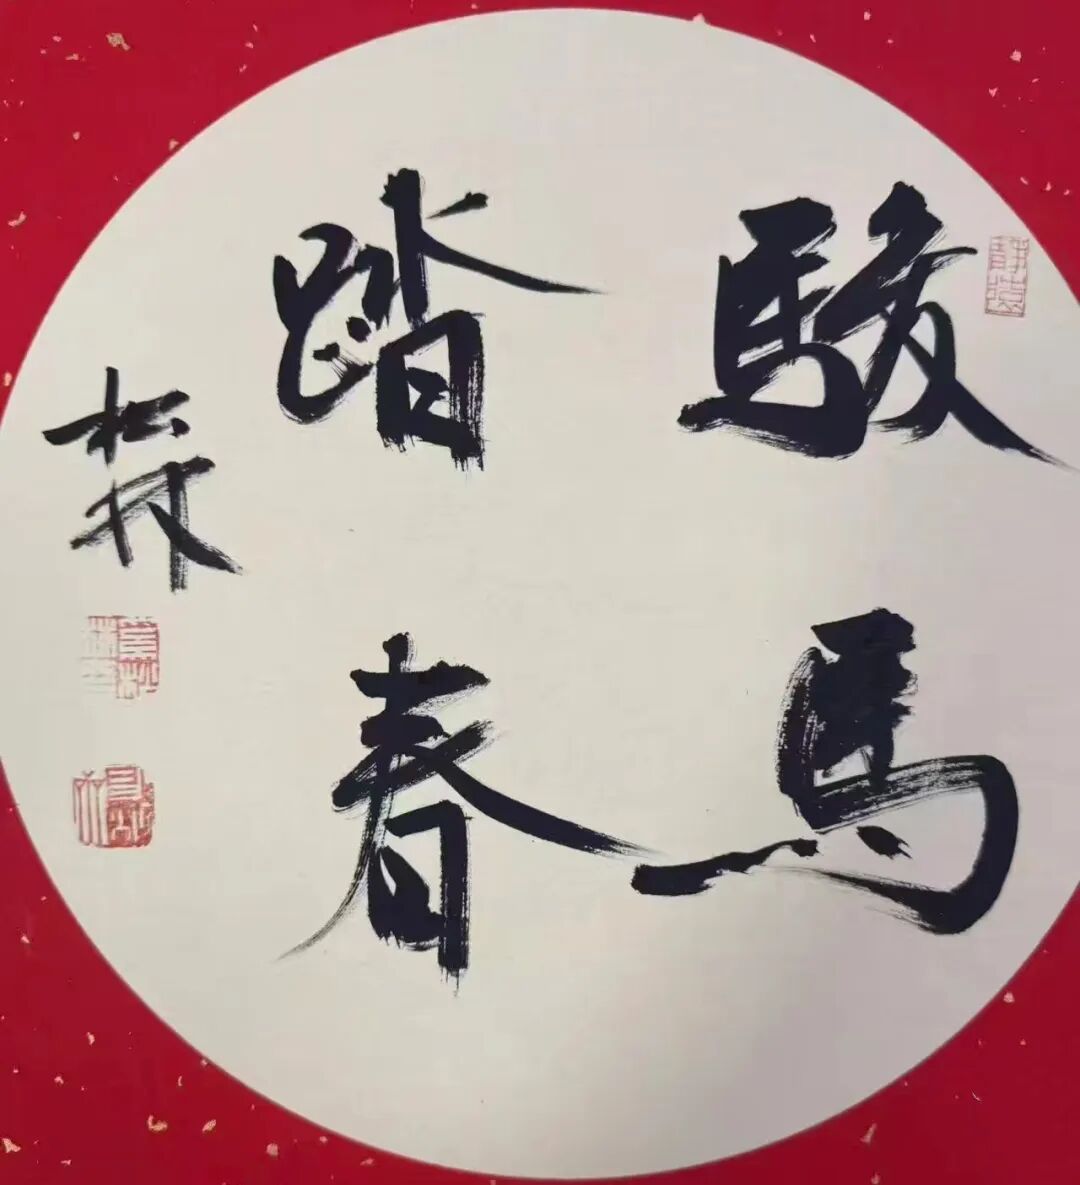 駿馬
踏春
松林